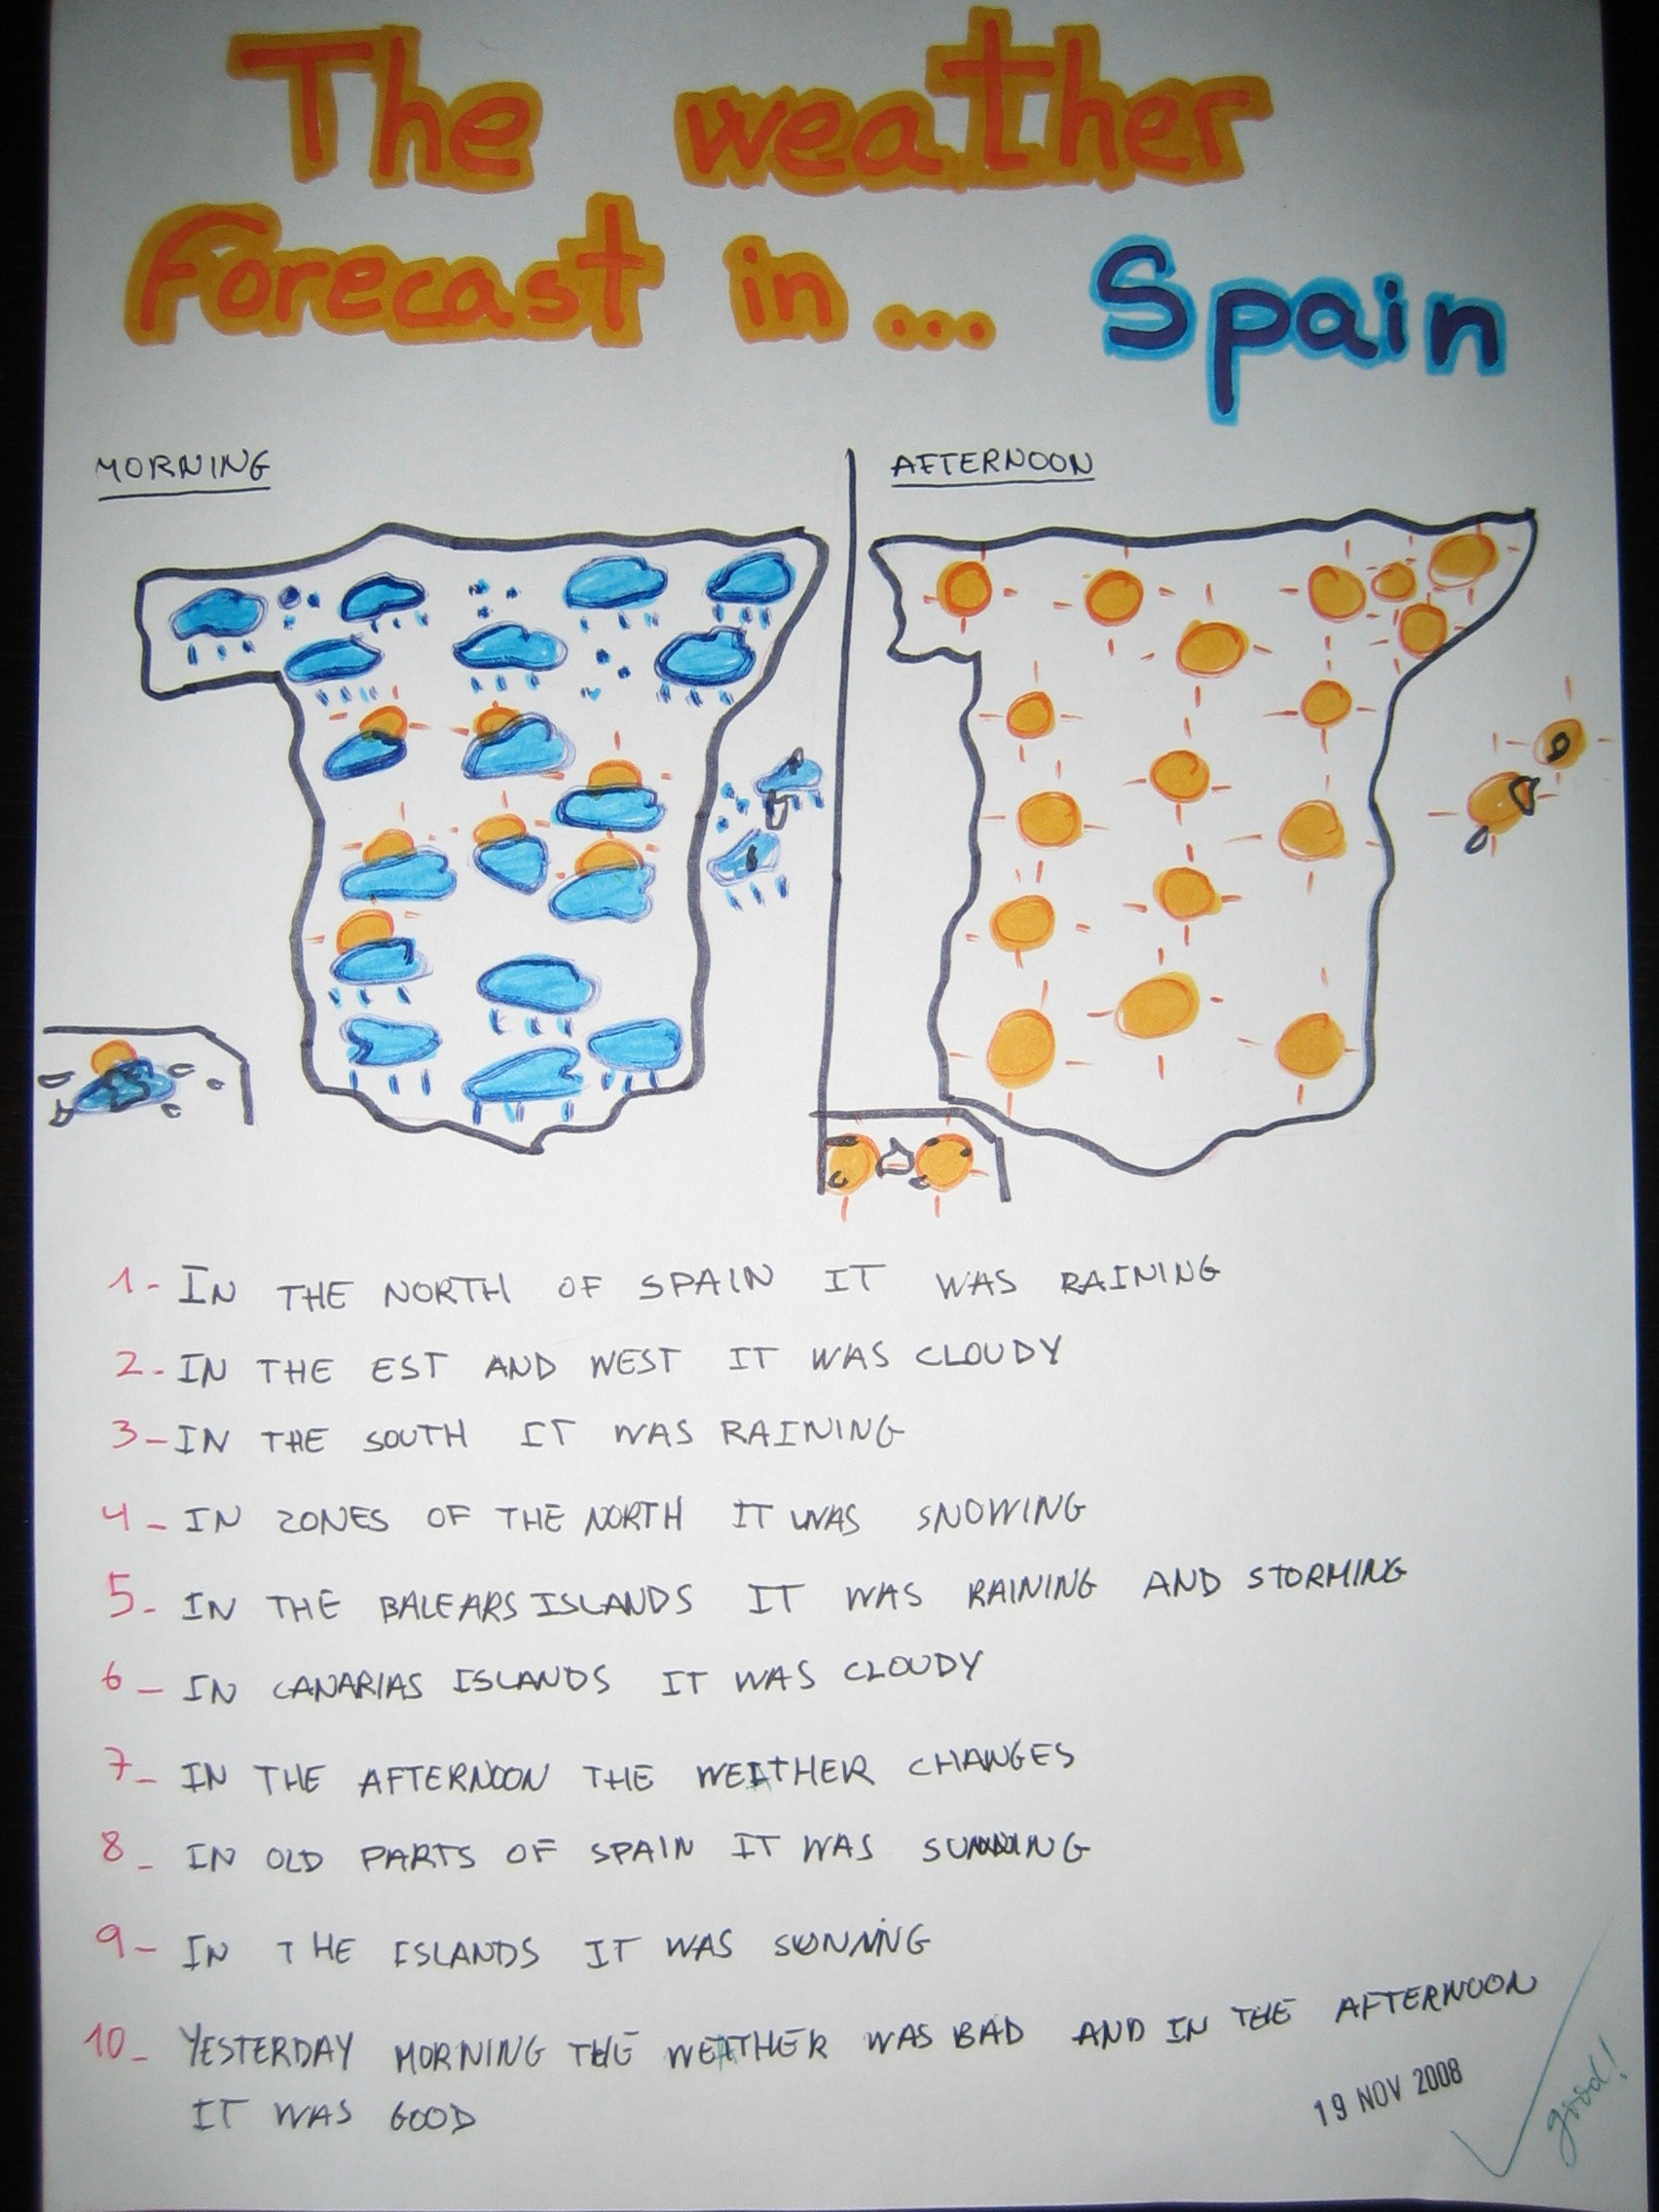 The weather
Forecast in... Spain
MORNING
AFTERNOON
1- IN THE NORTH OF SPAIN IT WAS RAINING
2- IN THE EST AND WEST IT WAS CLOUDY
3- IN THE SOUTH IT WAS RAINING
4- IN ZONES OF THE NORTH IT WAS SNOWING
5- IN THE BALEARS ISLANDS IT WAS RAINING AND STORMING
6- IN CANARIAS ISLANDS IT WAS CLOUDY
7- IN THE AFTERNOON THE WEATHER CHANGES
8- IN OLD PARTS OF SPAIN IT WAS SUNNING
9- IN THE ISLANDS IT WAS SUNNING
10- YESTERDAY MORNING THE WEATHER WAS BAD AND IN THE AFTERNOON
IT WAS GOOD
19 NOV 2008
good!